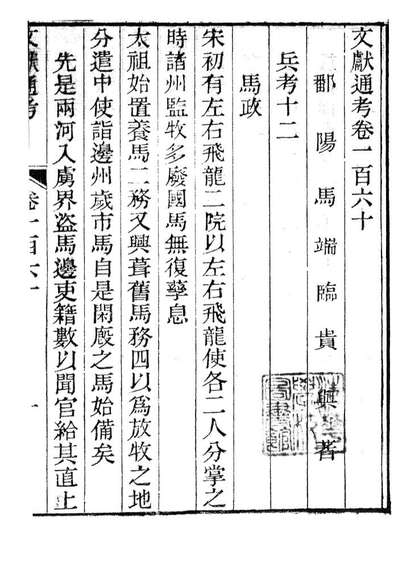 文獻通考卷一百六十
鄱陽馬端臨貴與著
兵考十二
馬政
宋初有左右飛龍二院以左右飛龍使各二人分掌之
時諸州監牧多廢國馬無復孳息
太祖始置養馬二務又興葺舊馬務四以爲放牧之地
分遣中使詣邊州歲市馬自是閑廐之馬始備矣
先是兩河入虜界盜馬邊吏籍數以聞官給其直上
文獻通考
卷一百六十
一